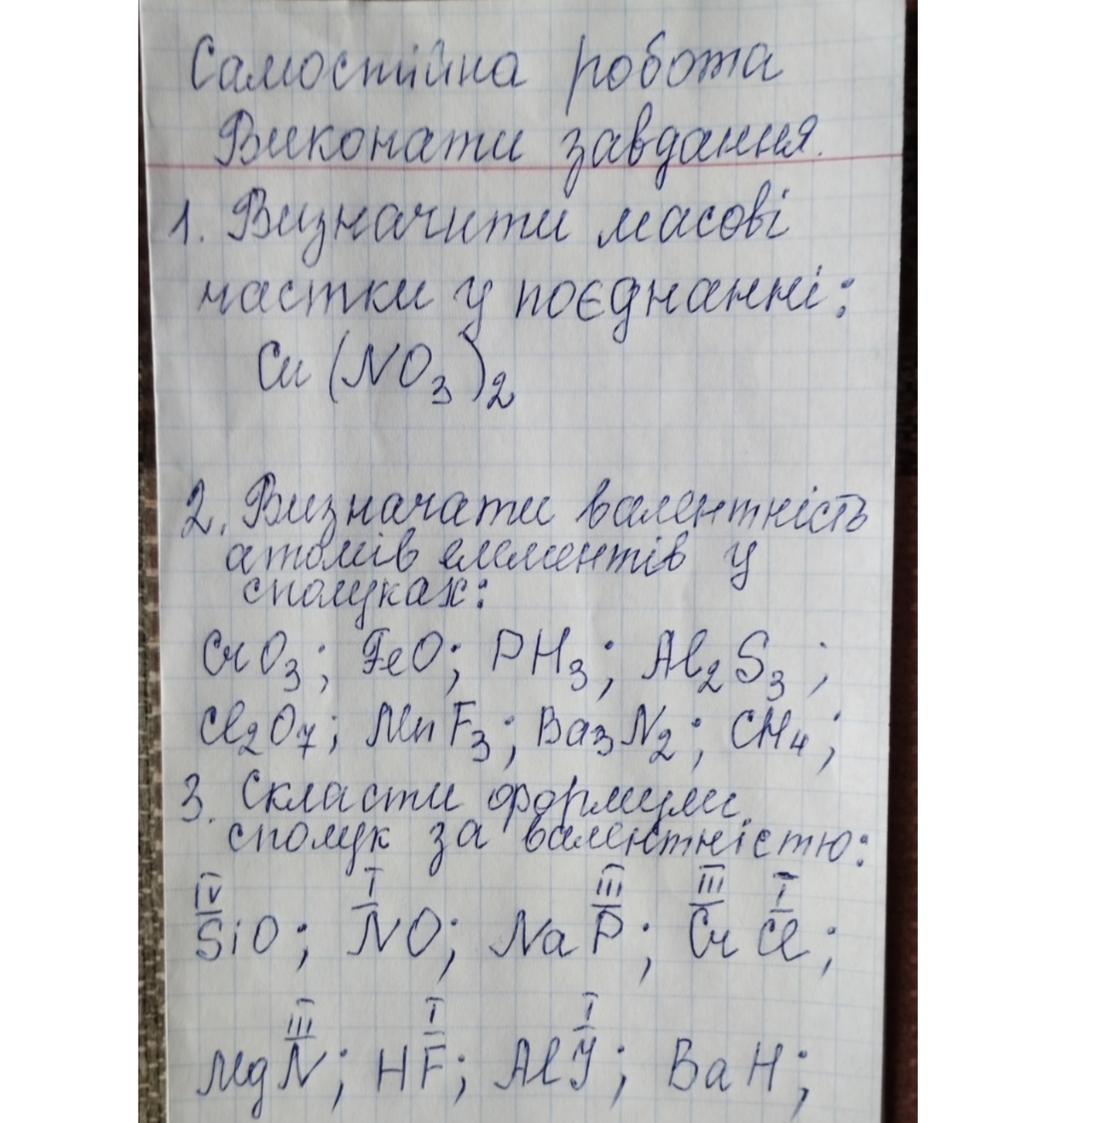 Самостійна робота
Виконати завдання.
1. Визначити масові
частки у поєднанні:
Cu (NO3)2
2. Визначати валентність
атомів елементів у
сполуках:
CrO3; FeO; PH3; Al2S3;
Cl2O7; MnF3; Ba3N2; CH4;
3. Скласти формули
сполук за валентністю:
IV I III III I
SiO; NO; NaP; CrCl;
III I I
MgN; HF; AlJ; BaH;